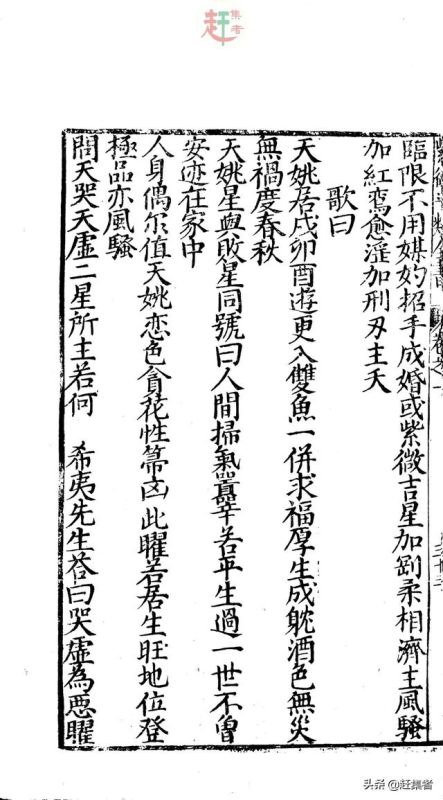 赶集者
臨限不用媒妁招手成婚或紫微吉星加剛柔相濟主風騷
加紅鸞愈淫加刑刃主夭
歌曰
天姚居戌卯酉遊更入雙魚一併求福厚生成躭酒色無災
無禍度春秋
天姚星與敗星同號曰人間掃氣囂辛若平生過一世不曾
安迹在家中
人身偶尔值天姚恋色貪花性帶凶此曜若居生旺地位登
極品亦風騷
問天哭天虛二星所主若何 希夷先生荅曰哭虛為惡曜
头条@赶集者